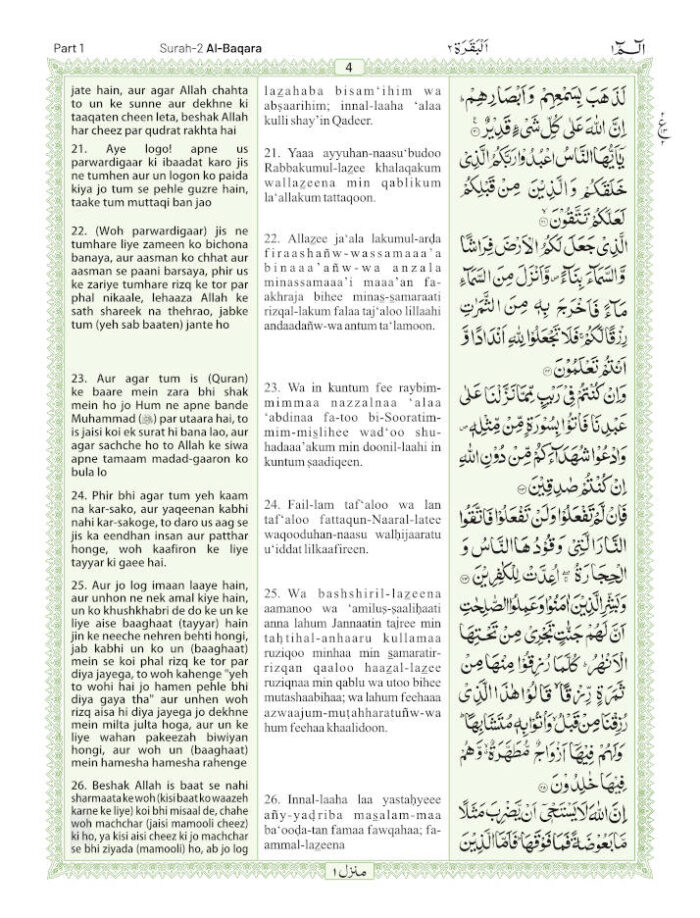 Part 1
Surah-2 Al-Baqara
اَلْبَقَرَة ٢
الٓمّٓ ١
4
jate hain, aur agar Allah chahta
to un ke sunne aur dekhne ki
taaqaten cheen leta, beshak Allah
har cheez par qudrat rakhta hai
21. Aye logo! apne us
parwardigaar ki ibaadat karo jis
ne tumhen aur un logon ko paida
kiya jo tum se pehle guzre hain,
taake tum muttaqi ban jao
22. (Woh parwardigaar) jis ne
tumhare liye zameen ko bichona
banaya, aur aasman ko chhat aur
aasman se paani barsaya, phir us
ke zariye tumhare rizq ke tor par
phal nikaale, lehaaza Allah ke
sath shareek na thehrao, jabke
tum (yeh sab baaten) jante ho
23. Aur agar tum is (Quran)
ke baare mein zara bhi shak
mein ho jo Hum ne apne bande
Muhammad (ﷺ) par utaara hai, to
is jaisi koi ek surat hi bana lao, aur
agar sachche ho to Allah ke siwa
apne tamaam madad-gaaron ko
bula lo
24. Phir bhi agar tum yeh kaam
na kar-sako, aur yaqeenan kabhi
nahi kar-sakoge, to daro us aag se
jis ka eendhan insan aur patthar
honge, woh kaafiron ke liye
tayyar ki gaee hai.
25. Aur jo log imaan laaye hain,
aur unhon ne nek amal kiye hain,
un ko khushkhabri de do ke un ke
liye aise baaghaat (tayyar) hain
jin ke neeche nehren behti hongi,
jab kabhi un ko un (baaghaat)
mein se koi phal rizq ke tor par
diya jayega, to woh kahenge "yeh
to wohi hai jo hamen pehle bhi
diya gaya tha" aur unhen woh
rizq aisa hi diya jayega jo dekhne
mein milta julta hoga, aur un ke
liye wahan pakeezah biwiyan
hongi, aur woh un (baaghaat)
mein hamesha hamesha rahenge
26. Beshak Allah is baat se nahi
sharmaata ke woh (kisi baat ko waazeh
karne ke liye) koi bhi misaal de, chahe
woh machchar (jaisi mamooli cheez)
ki ho, ya kisi aisi cheez ki jo machchar
se bhi ziyada (mamooli) ho, ab jo log
la<u>z</u>ahaba bisam‘ihim wa
abṣaarihim; innal-laaha ‘alaa
kulli shay’in Qadeer.
21. Yaaa ayyuhan-naasu‘budoo
Rabbakumul-la<u>z</u>ee khalaqakum
walla<u>z</u>eena min qablikum
la‘allakum tattaqoon.
22. Alla<u>z</u>ee ja‘ala lakumul-arḍa
firaashañw-wassamaaa’a
binaaa’añw-wa anzala
minassamaaa’i maaa’an fa-
akhraja bihee minaṣ-ṣamaraati
rizqal-lakum falaa taj‘aloo lillaahi
andaadañw-wa antum ta‘lamoon.
23. Wa in kuntum fee raybim-
mimmaa nazzalnaa ‘alaa
‘abdinaa fa-too bi-Sooratim-
mim-mi<u>s</u>lihee wad‘oo shu-
hadaaa’akum min doonil-laahi in
kuntum ṣaadiqeen.
24. Fail-lam taf‘aloo wa lan
taf‘aloo fattaqun-Naaral-latee
waqooduhan-naasu walḥijaaratu
u‘iddat lilkaafireen.
25. Wa bashshiril-la<u>z</u>eena
aamanoo wa ‘amiluṣ-ṣaaliḥaati
anna lahum Jannaatin tajree min
taḥtihal-anhaaru kullamaa
ruziqoo minhaa min <u>s</u>amaratir-
rizqan qaaloo haa<u>z</u>al-la<u>z</u>ee
ruziqnaa min qablu wa utoo bihee
mutashaabihaa; wa lahum feehaaa
azwaajum-muṭahharatuñw-wa
hum feehaa khaalidoon.
26. Innal-laaha laa yastaḥyeee
añy-yaḍriba ma<u>s</u>alam-maa
ba‘ooḍa-tan famaa fawqahaa; fa-
ammal-la<u>z</u>eena
لَذَهَبَ بِسَمْعِهِمْ وَاَبْصَارِهِمْ ؕ
اِنَّ اللّٰهَ عَلٰى كُلِّ شَىْءٍ قَدِيْرٌ ۟
يٰۤاَيُّهَا النَّاسُ اعْبُدُوْا رَبَّكُمُ الَّذِىْ
خَلَقَكُمْ وَالَّذِيْنَ مِنْ قَبْلِكُمْ
لَعَلَّكُمْ تَتَّقُوْنَ ۟
الَّذِىْ جَعَلَ لَكُمُ الْاَرْضَ فِرَاشًا
وَّالسَّمَآءَ بِنَآءً ۪ وَّاَنْزَلَ مِنَ السَّمَآءِ
مَآءً فَاَخْرَجَ بِهٖ مِنَ الثَّمَرٰتِ
رِزْقًا لَّكُمْ ۚ فَلَا تَجْعَلُوْا لِلّٰهِ اَنْدَادًا وَّ
اَنْتُمْ تَعْلَمُوْنَ ۟
وَاِنْ كُنْتُمْ فِىْ رَيْبٍ مِّمَّا نَزَّلْنَا عَلٰى
عَبْدِنَا فَاْتُوْا بِسُوْرَةٍ مِّنْ مِّثْلِهٖ ۪
وَادْعُوْا شُهَدَآءَكُمْ مِّنْ دُوْنِ اللّٰهِ
اِنْ كُنْتُمْ صٰدِقِيْنَ ۟
فَاِنْ لَّمْ تَفْعَلُوْا وَلَنْ تَفْعَلُوْا فَاتَّقُوا
النَّارَ الَّتِىْ وَقُوْدُهَا النَّاسُ وَ
الْحِجَارَةُ ۖۚ اُعِدَّتْ لِلْكٰفِرِيْنَ ۟
وَبَشِّرِ الَّذِيْنَ اٰمَنُوْا وَعَمِلُوا الصّٰلِحٰتِ
اَنَّ لَهُمْ جَنّٰتٍ تَجْرِىْ مِنْ تَحْتِهَا
الْاَنْهٰرُ ؕ كُلَّمَا رُزِقُوْا مِنْهَا مِنْ
ثَمَرَةٍ رِّزْقًا ۙ قَالُوْا هٰذَا الَّذِىْ
رُزِقْنَا مِنْ قَبْلُ ۙ وَاُتُوْا بِهٖ مُتَشَابِهًا ؕ
وَلَهُمْ فِيْهَاۤ اَزْوَاجٌ مُّطَهَّرَةٌ ۙ وَّهُمْ
فِيْهَا خٰلِدُوْنَ ۟
اِنَّ اللّٰهَ لَا يَسْتَحْىٖۤ اَنْ يَّضْرِبَ مَثَلًا
مَّا بَعُوْضَةً فَمَا فَوْقَهَا ؕ فَاَمَّا الَّذِيْنَ
منزل ١